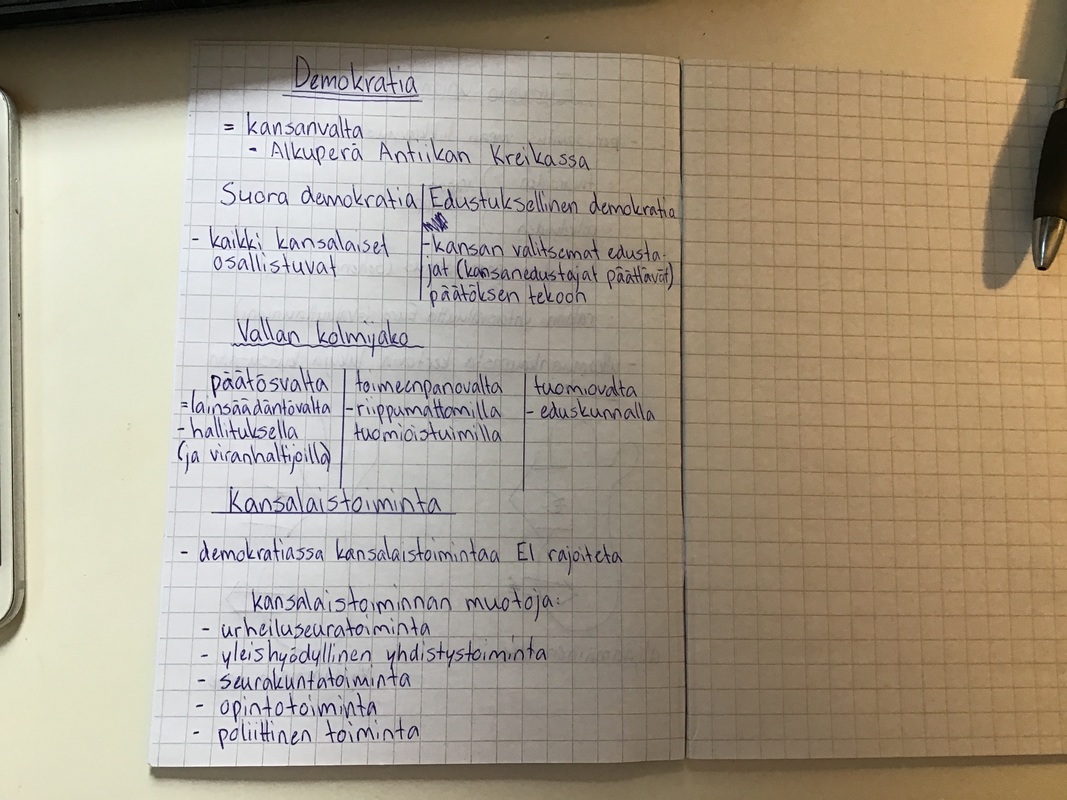 Demokratia
= kansanvalta
- Alkuperä Antiikan Kreikassa
Suora demokratia | Edustuksellinen demokratia
- kaikki kansalaiset
osallistuvat
- kansan valitsemat edusta-
jat (kansanedustajat päättävät)
päätöksen tekoon
Vallan kolmijako
päätösvalta
= lainsäädäntövalta
- hallituksella
(ja viranhaltijoilla)
toimeenpanovalta
- riippumattomilla
tuomioistuimilla
tuomiovalta
- eduskunnalla
Kansalaistoiminta
- demokratiassa kansalaistoimintaa EI rajoiteta
kansalaistoiminnan muotoja:
- urheiluseuratoiminta
- yleishyödyllinen yhdistystoiminta
- seurakuntatoiminta
- opintotoiminta
- poliittinen toiminta